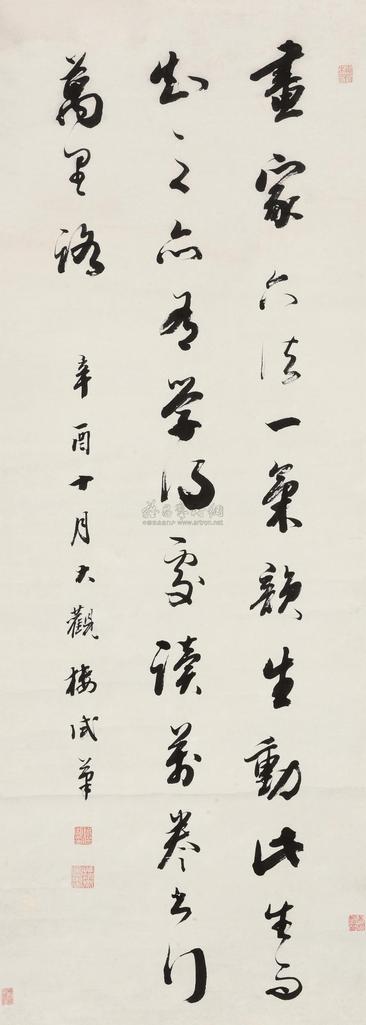 畫家六法一氣韻生動此生而
知之亦有學得處讀萬卷書行
萬里路
辛酉十月大觀樓試筆
雅昌藝術網
www.artron.net